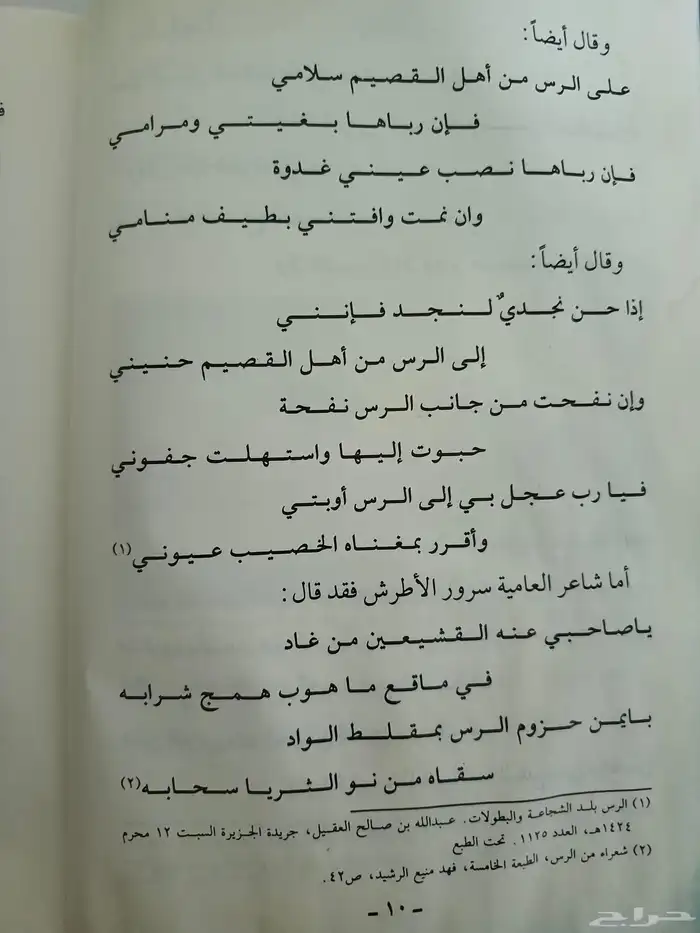 وقال أيضاً:
على الرس من أهل القصيم سلامي
فإن رباها بغيتي ومرامي
فإن رباها نصب عيني غدوة
وان نمت وافتني بطيف منامي
وقال أيضاً:
إذا حن نجديٌ لنجد فإنني
إلى الرس من أهل القصيم حنيني
وإن نفحت من جانب الرس نفحة
حبوت إليها واستهلت جفوني
فيا رب عجل بي إلى الرس أوبتي
وأقرر بمغناه الخصيب عيوني(١)
أما شاعر العامية سرور الأطرش فقد قال:
ياصاحبي عنه القشيعين من غاد
في ماقع ما هوب همج شرابه
بايمن حزوم الرس بمقلط الواد
سقاه من نو الثريا سحابه(٢)
(١) الرس بلد الشجاعة والبطولات. عبدالله بن صالح العقيل، جريدة الجزيرة السبت ١٢ محرم
١٤٢٤هـ، العدد ١١٢٥. تحت الطبع
(٢) شعراء من الرس، الطبعة الخامسة، فهد منيع الرشيد، ص٤٢.
- ١٠ -
حراج